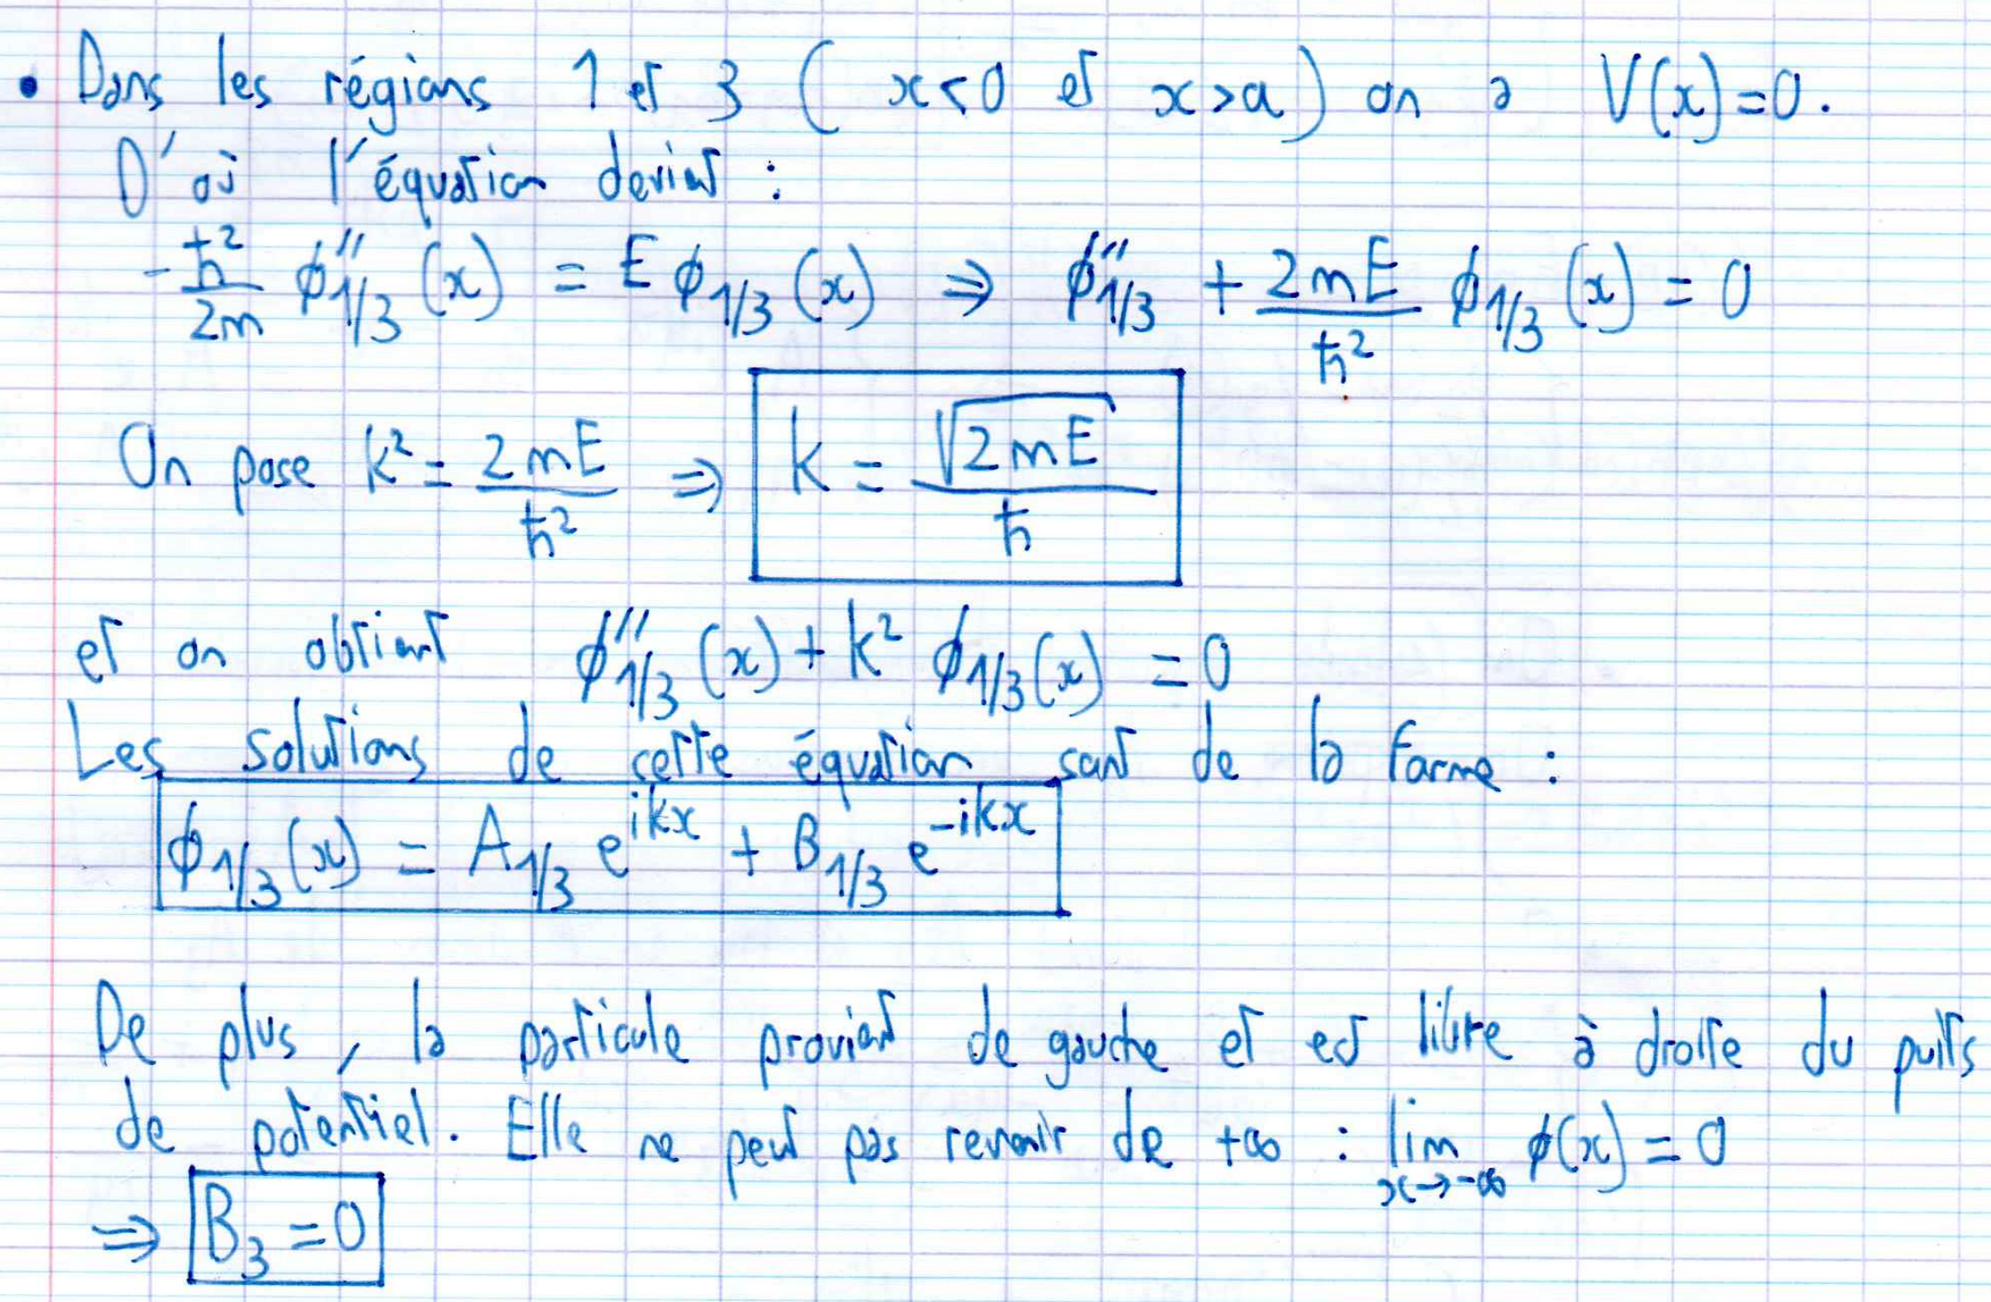 • Dans les régions 1 et 3 ( x<0 et x>a) on a V(x)=0.
D'où l'équation devient :
-ħ²/2m ϕ''₁/₃(x) = E ϕ₁/₃(x) ⇒ ϕ''₁/₃ + 2mE/ħ² ϕ₁/₃(x) = 0
On pose k² = 2mE/ħ² ⇒ k = √2mE/ħ
et on obtient ϕ''₁/₃(x) + k² ϕ₁/₃(x) = 0
Les solutions de cette équation sont de la forme :
ϕ₁/₃(x) = A₁/₃ e^{ikx} + B₁/₃ e^{-ikx}
De plus, la particule provient de gauche et est libre à droite du puits
de potentiel. Elle ne peut pas revenir de +∞ : lim_{x→-∞} ϕ(x) = 0
⇒ B₃ = 0